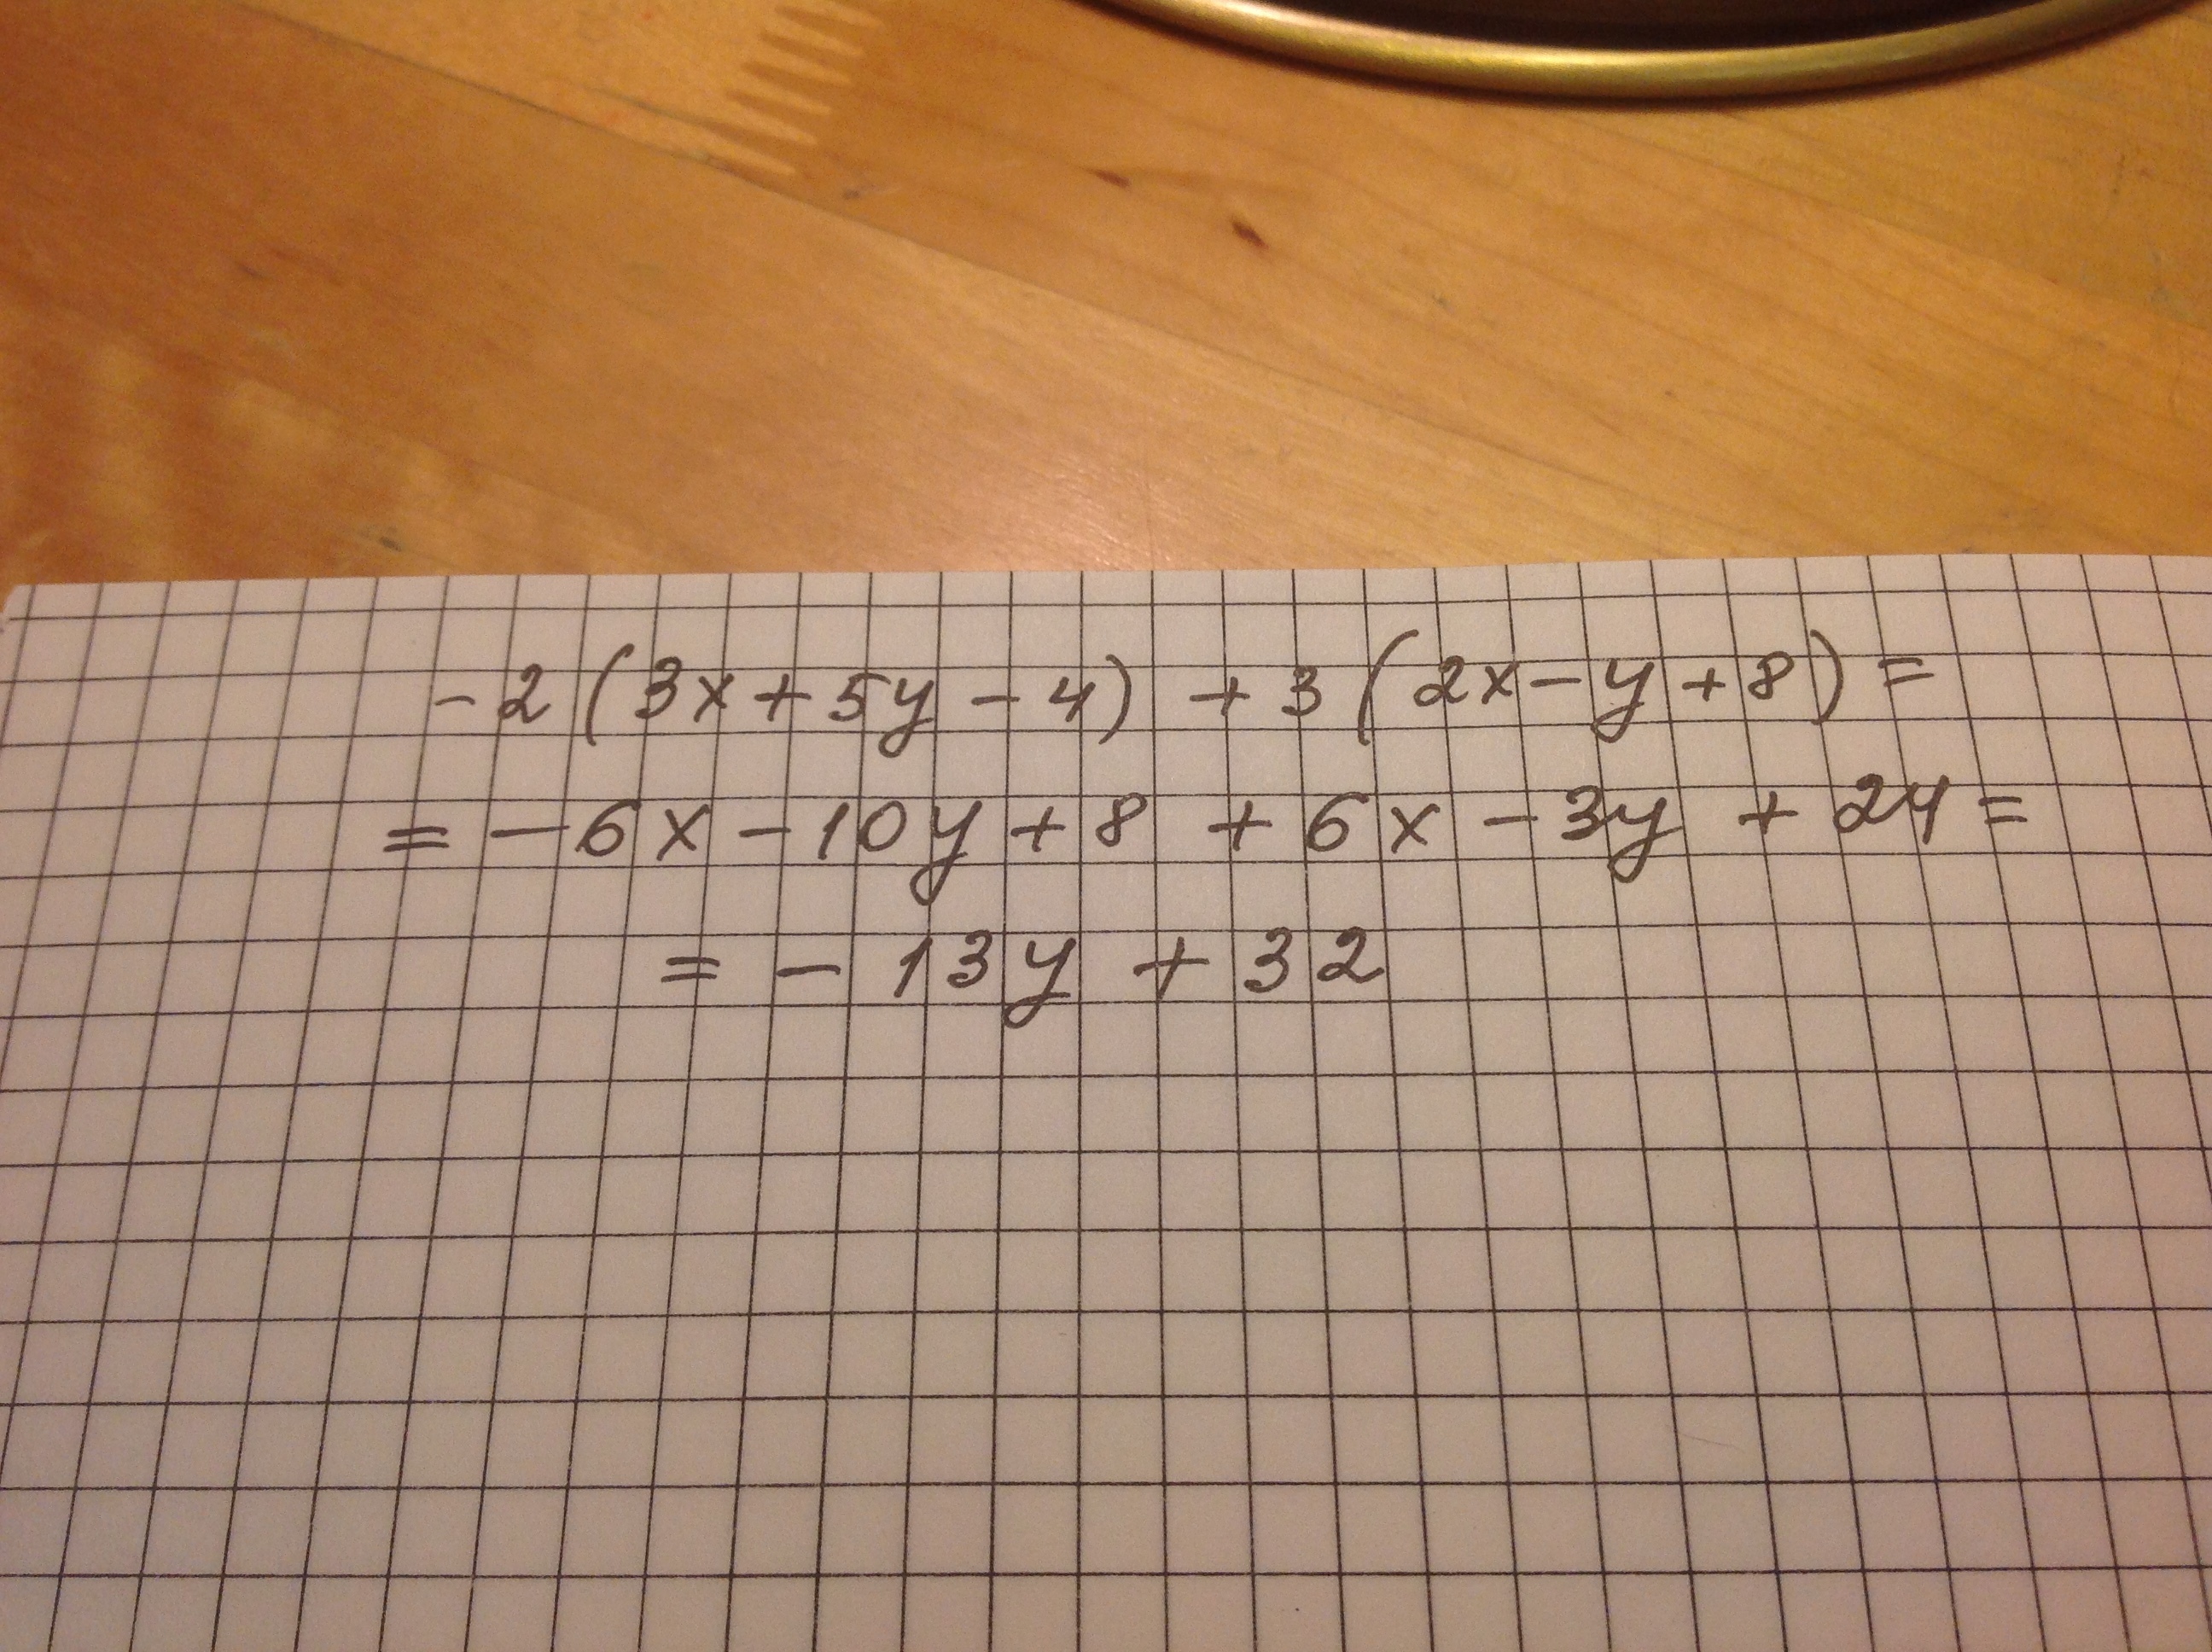 -2(3x+5y-4) +3(2x-y+8)=
= -6x-10y+8 +6x-3y +24=
= - 13y + 32